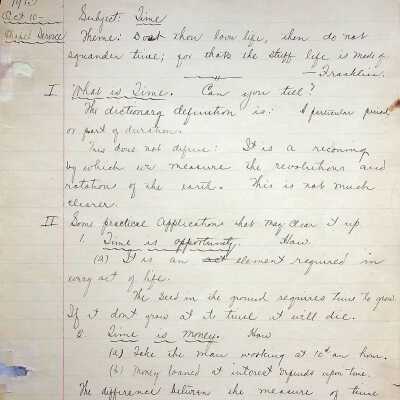 Oct 10
Chapel Service
Subject: Time
Theme: Dost thou love life, then do not
squander time; for thats the stuff life is made of
— Franklin.
I What is Time. Can you tell?
The dictionary definition is: A particular period
or part of duration.
This does not define: It is a reconing
by which we measure the revolutions and
rotation of the earth. This is not much
clearer.
II Some practical applications that may clear it up
1. Time is opportunity. How
(a) It is an act element required in
every act of life.
The seed in the ground requires time to grow.
If it dont grow at its time it will die.
2 Time is money. How
(a) Take the man working at 10¢ an hour.
(b) Money loaned at interest depends upon time.
The difference between the measure of time